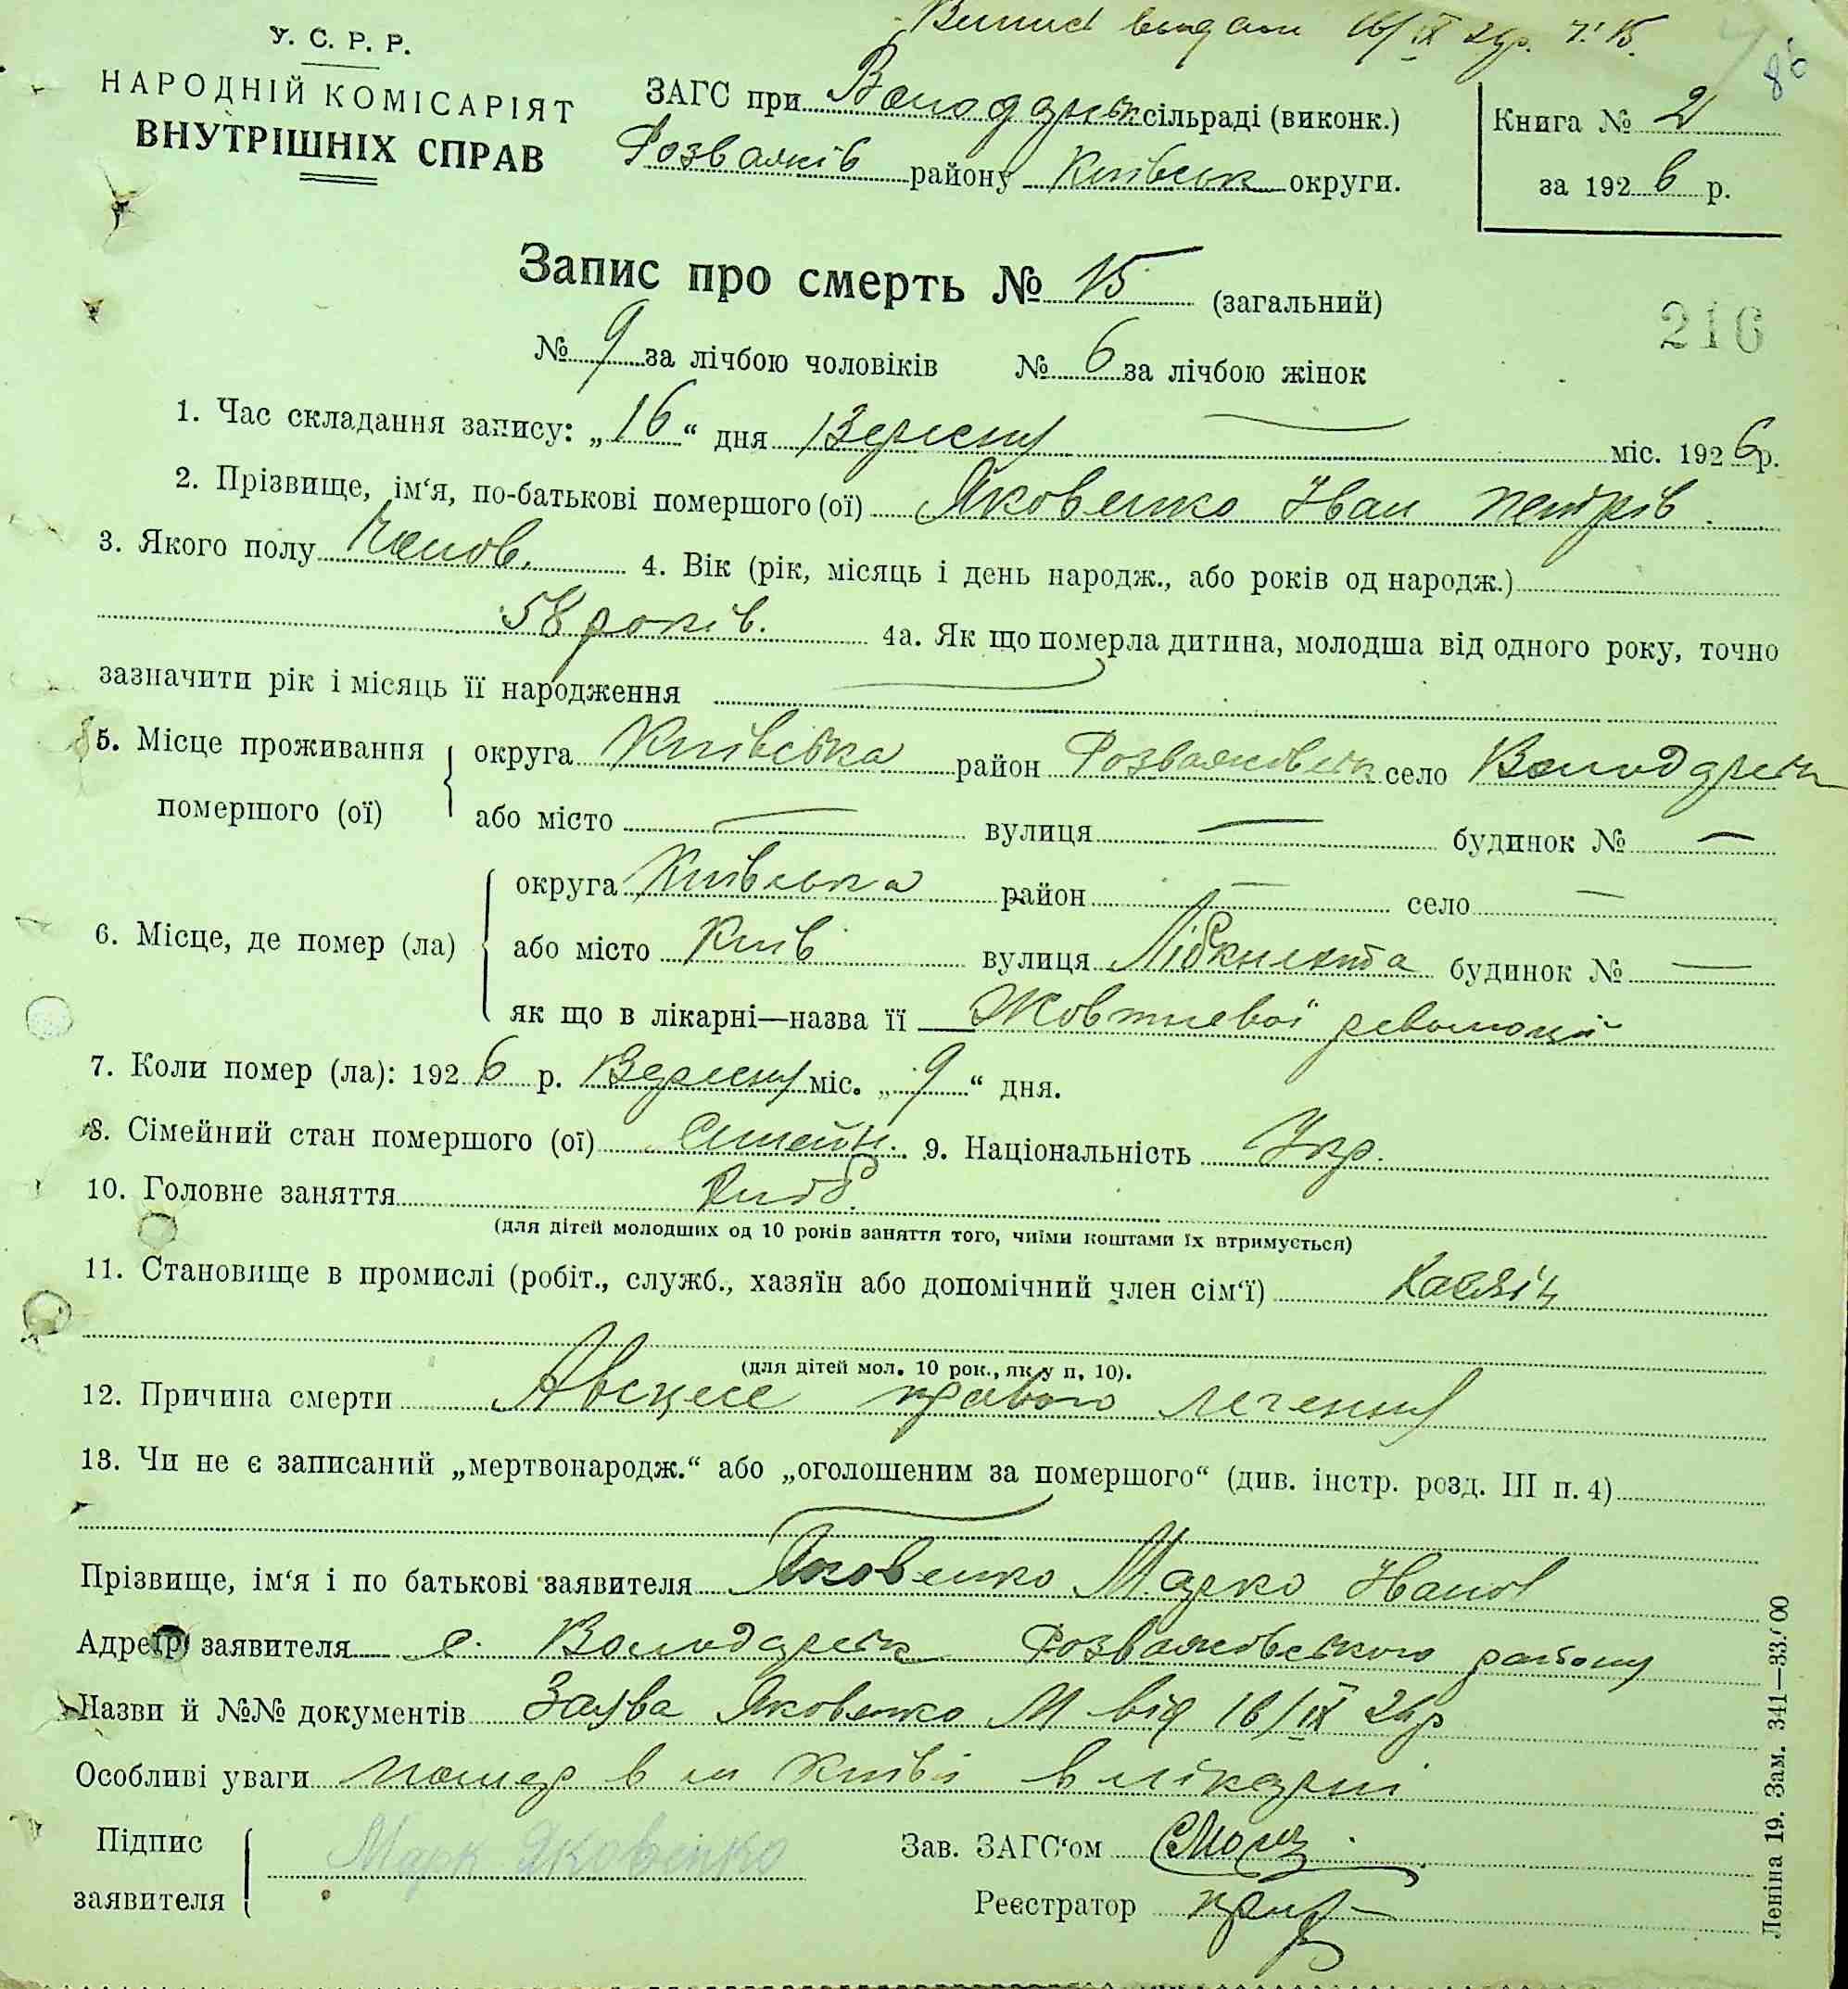 Випис видан 16/IX 26р. Ч. 15.
86
У. С. Р. Р.
НАРОДНІЙ КОМІСАРІЯТ
ВНУТРІШНІХ СПРАВ
ЗАГС при Володарськ сільраді (виконк.)
Розважів району Київськ округи.
Книга № 2
за 1926 р.
Запис про смерть № 15 (загальний)
216
№ 9 за лічбою чоловіків № 6 за лічбою жінок
1. Час складання запису: „16“ дня Вересня міс. 1926 р.
2. Прізвище, ім‘я, по-батькові помершого (ої) Яковенко Іван Петрів
3. Якого полу Чолов. 4. Вік (рік, місяць і день народж., або років од народж.)
58 років. 4а. Як що померла дитина, молодша від одного року, точно
зазначити рік і місяць її народження
5. Місце проживання помершого (ої)
округа Київська район Розважівськ село Володарськ
або місто — вулиця — будинок № —
6. Місце, де помер (ла)
округа Київська район — село —
або місто Київ вулиця Лібкнехта будинок № —
як що в лікарні—назва її Жовтневої революції
7. Коли помер (ла): 1926 р. Вересня міс. „9“ дня.
8. Сімейний стан помершого (ої) Симейн. 9. Національність Укр.
10. Головне заняття Хліб.
(для дітей молодших од 10 років заняття того, чиїми коштами їх втримується)
11. Становище в промислі (робіт., служб., хазяїн або допомічний член сім‘ї) Хазяїн
(для дітей мол. 10 рок., як у п. 10).
12. Причина смерти Абсцесс правого легення
13. Чи не є записаний „мертвонародж.“ або „оголошеним за помершого“ (див. інстр. розд. III п. 4)
Прізвище, ім‘я і по батькові заявителя Яковенко Марко Іванов
Адреса заявителя с. Володарськ Розважівського району
Назви й №№ документів Заява Яковенко М від 16/IX 26р
Особливі уваги помер в м Київі в лікарні
Підпис заявителя Марк Яковенко
Зав. ЗАГС‘ом
Реєстратор
Леніна 19. Зам. 341—33.000